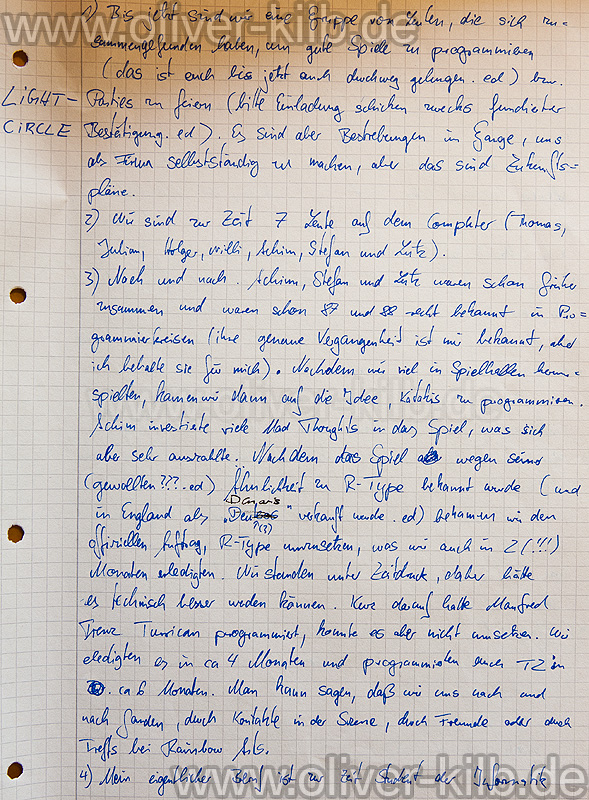 1) Bis jetzt sind wir eine Gruppe von Leuten, die sich zu-
sammengefunden haben, um gute Spiele zu programmieren
(das ist euch bis jetzt auch durchweg gelungen. ed) bzw.
LIGHT- Parties zu feiern (bitte Einladung schicken zwecks fundierter
CIRCLE Bestätigung. ed). Es sind aber Bestrebungen im Gange, uns
als Firma selbstständig zu machen, aber das sind Zukunfts=
pläne.
2) Wir sind zur Zeit 7 Leute auf dem Computer (Thomas,
Julian, Holger, Willi, Achim, Stefan und Lutz).
3) Nach und nach. Achim, Stefan und Lutz waren schon früher
zusammen und waren schon 87 und 88 recht bekannt in Pro=
grammiererkreisen (ihre genaue Vergangenheit ist mir bekannt, aber
ich behalte sie für mich). Nachdem wir viel in Spielhallen herum=
spielten, kamen wir dann auf die Idee, Katakis zu programmieren.
Achim investierte viele Mad Thoughts in das Spiel, was sich
aber sehr auszahlte. Nachdem das Spiel wegen seiner
(gewollten??? ed) Ähnlichkeit zu R-Type bekannt wurde (und
in England als "Denaris" verkauft wurde. ed) bekamen wir den
?(?)
offiziellen Auftrag, R-Type umzusetzen, was wir auch in 2(!!!)
Monaten erledigten. Wir standen unter Zeitdruck, daher hätte
es technisch besser werden können. Kurz darauf hatte Manfred
Trenz Turrican programmiert, konnte es aber nicht umsetzen. Wir
erledigten es in ca 4 Monaten und programmierten auch T2 in
ca 6 Monaten. Man kann sagen, daß wir uns nach und
nach fanden, durch Kontakte in der Szene, durch Freunde oder durch
Treffs bei Rainbow Arts.
4) Mein eigentlicher Beruf ist zur Zeit Student der Informatik
www.oliver-kilb.de
www.oliver-kilb.de
www.oliver-kilb.de